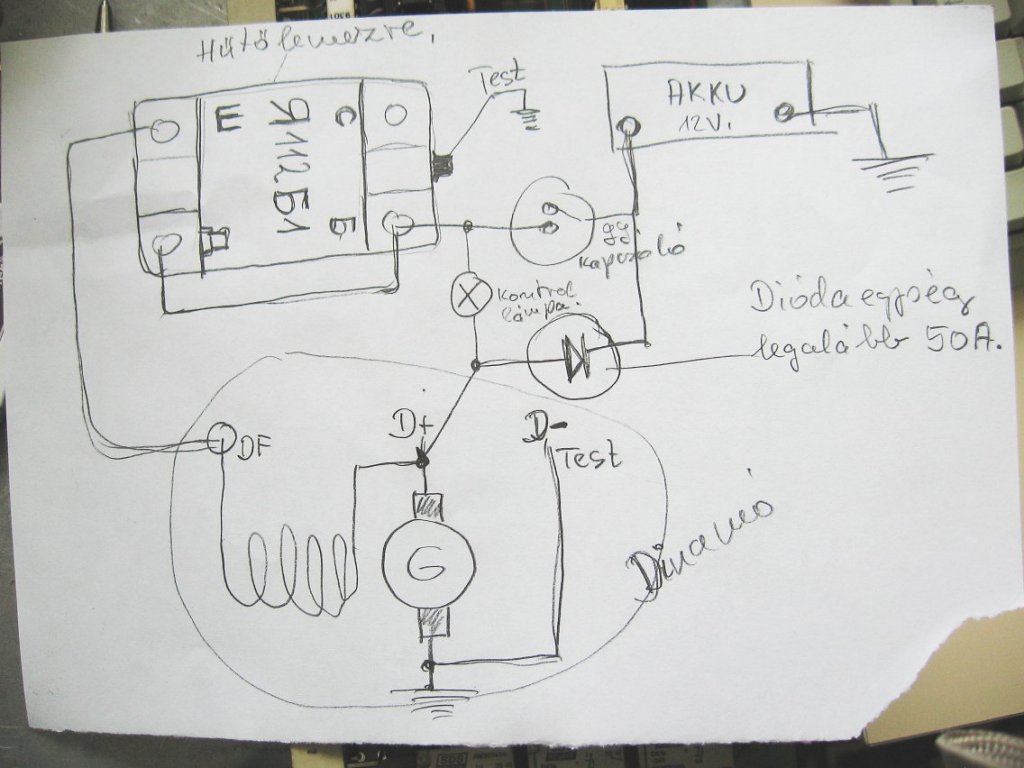 Hűtőlemezre,
Test
AKKU
12V.
Ш
Я112Б1
С
Б
Д
gy.
kapcsoló
Kontrol
lámpa.
Dióda egység
legalább 50A.
DF
D+
D-
Test
G
Dinamó